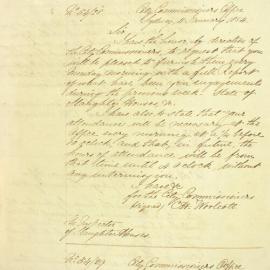 No 54/38 City Commissioners Office
Sydney 11 January 1854
Sir,
I have the honor, by direction of
the City Commissioners, to request that you
will be pleased to furnish them every
Monday morning with a full report
of what has been your engagements
during the previous week. State of
Slaughter Houses &c.
I have also to state that your
attendance will be necessary at the
Office every morning at a 1/4 before
10 o'clock, and that, in future, the
hours of attendance will be from
that time until 4 o'clock, without
any interruption.
I have &c
for the City Commissioners
Signed, C H Woolcott
The Inspector
of Slaughter Houses
No 54/39 City Commissioners Office